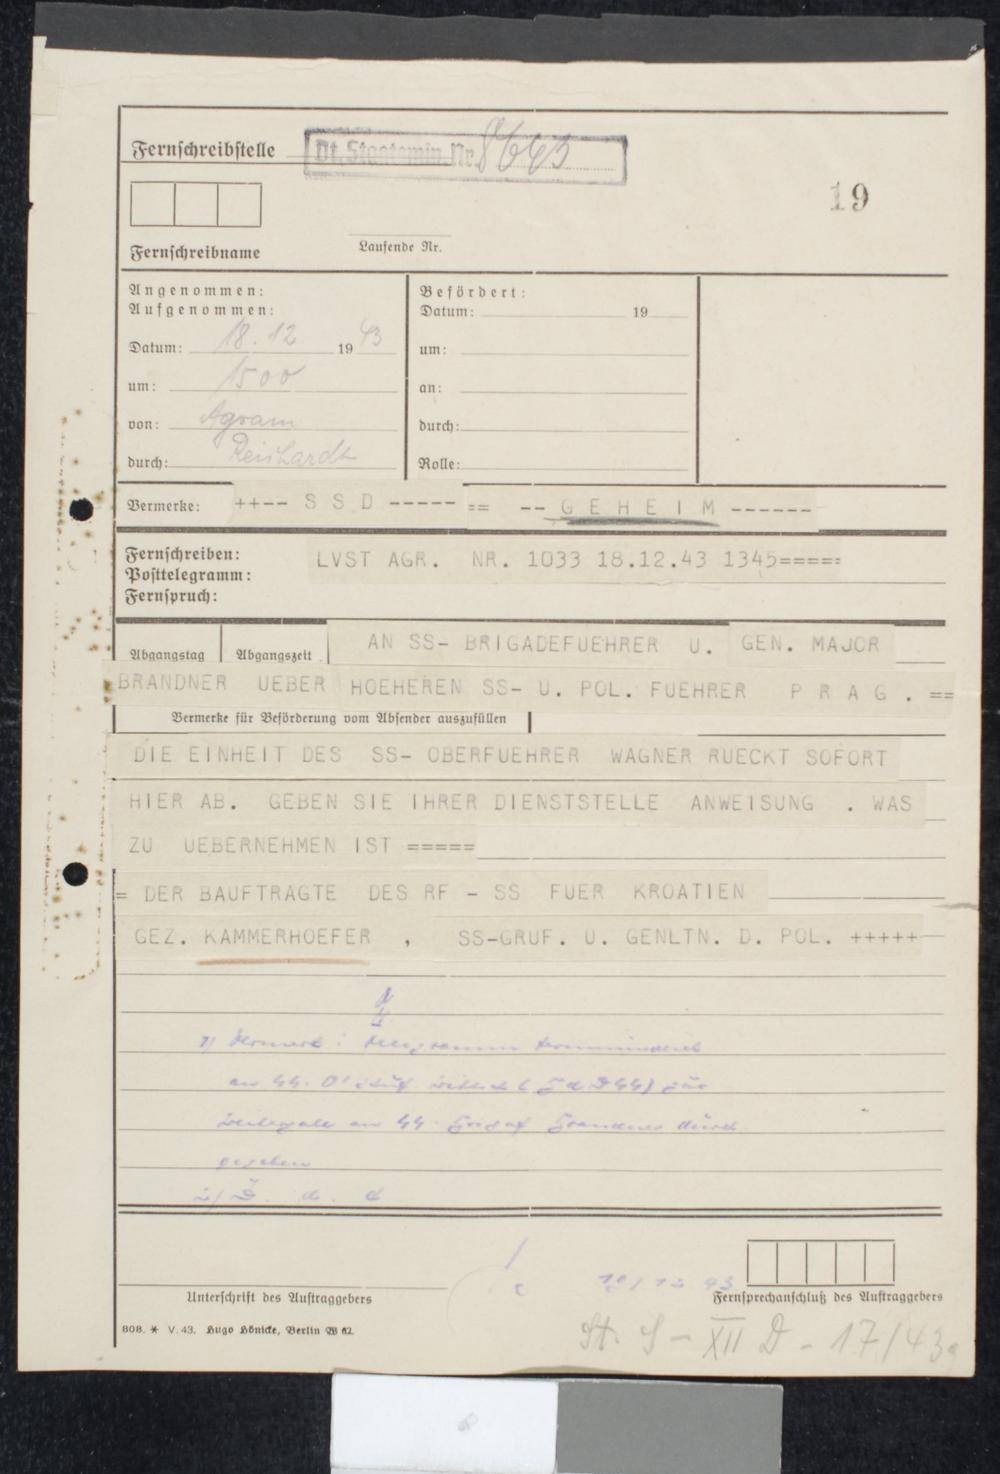 Fernschreibstelle
Dt. Staatsmin. Nr. 8643
19
Fernschreibname
Laufende Nr.
Angenommen:
Aufgenommen:
Datum: 18.12 1943
um: 1500
von: Agram
durch: Reinhardt
Befördert:
Datum: 19
um:
an:
durch:
Rolle:
Vermerke: ++-- S S D ----- == -- G E H E I M ------
Fernschreiben:
Posttelegramm:
Fernspruch:
LVST AGR. NR. 1033 18.12.43 1345=====
Abgangstag Abgangszeit
AN SS- BRIGADEFUEHRER U. GEN. MAJOR
BRANDNER UEBER HOEHEREN SS- U. POL. FUEHRER P R A G . ==
Vermerke für Beförderung vom Absender auszufüllen
DIE EINHEIT DES SS- OBERFUEHRER WAGNER RUECKT SOFORT
HIER AB. GEBEN SIE IHRER DIENSTSTELLE ANWEISUNG . WAS
ZU UEBERNEHMEN IST =====
= DER BAUFTRAGTE DES RF - SS FUER KROATIEN
GEZ. KAMMERHOEFER , SS-GRUF. U. GENLTN. D. POL. +++++
1) Vermerk: Telegramm
an
an Brandner durch
gegeben
Unterschrift des Auftraggebers
Fernsprechanschluß des Auftraggebers
808. * V. 43. Hugo Hönicke, Berlin W 62.
St. S - XII D - 17/43g